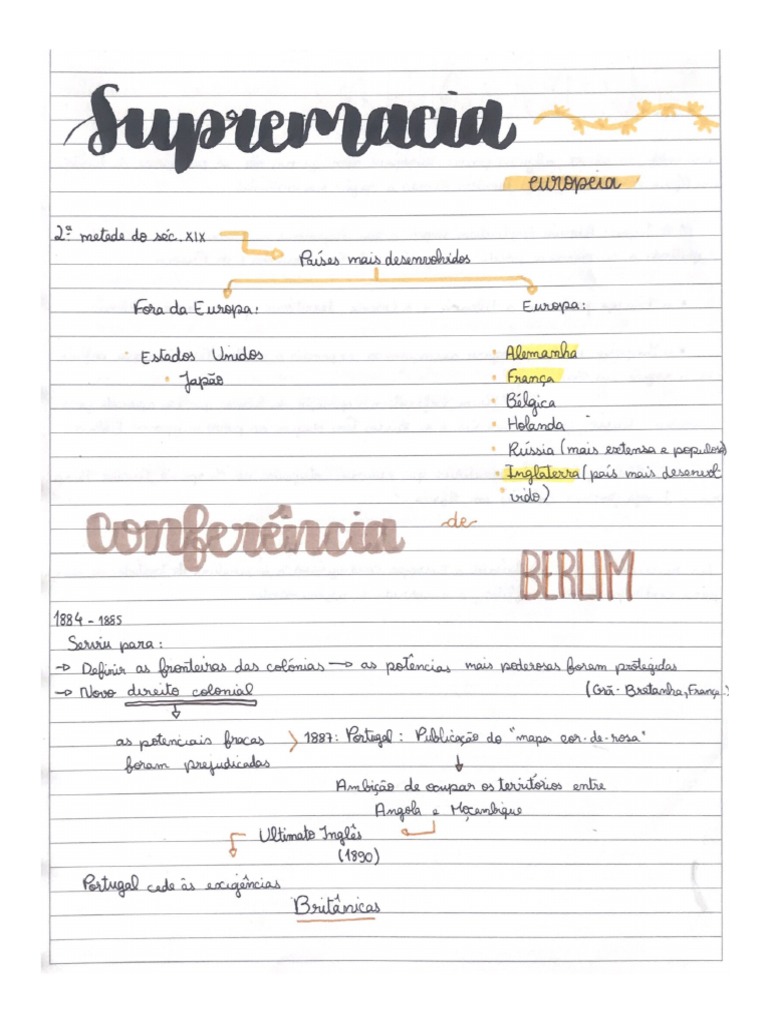 Supremacia
europeia
2ª metade do séc. XIX
Países mais desenvolvidos
Fora da Europa:
Europa:
• Estados Unidos
• Japão
• Alemanha
• França
• Bélgica
• Holanda
• Rússia (mais extensa e populosa)
• Inglaterra (país mais desenvol
vido)
Conferência de
BERLIM
1884 - 1885
Serviu para:
→ Definir as fronteiras das colónias → as potências mais poderosas foram protegidas
→ Novo direito colonial (Grã-Bretanha, França.)
as potenciais fracas
foram prejudicadas
1887: Portugal: Publicação do "mapa cor-de-rosa"
Ambição de ocupar os territórios entre
Angola e Moçambique
Ultimato Inglês
(1890)
Portugal cede às exigências
Britânicas